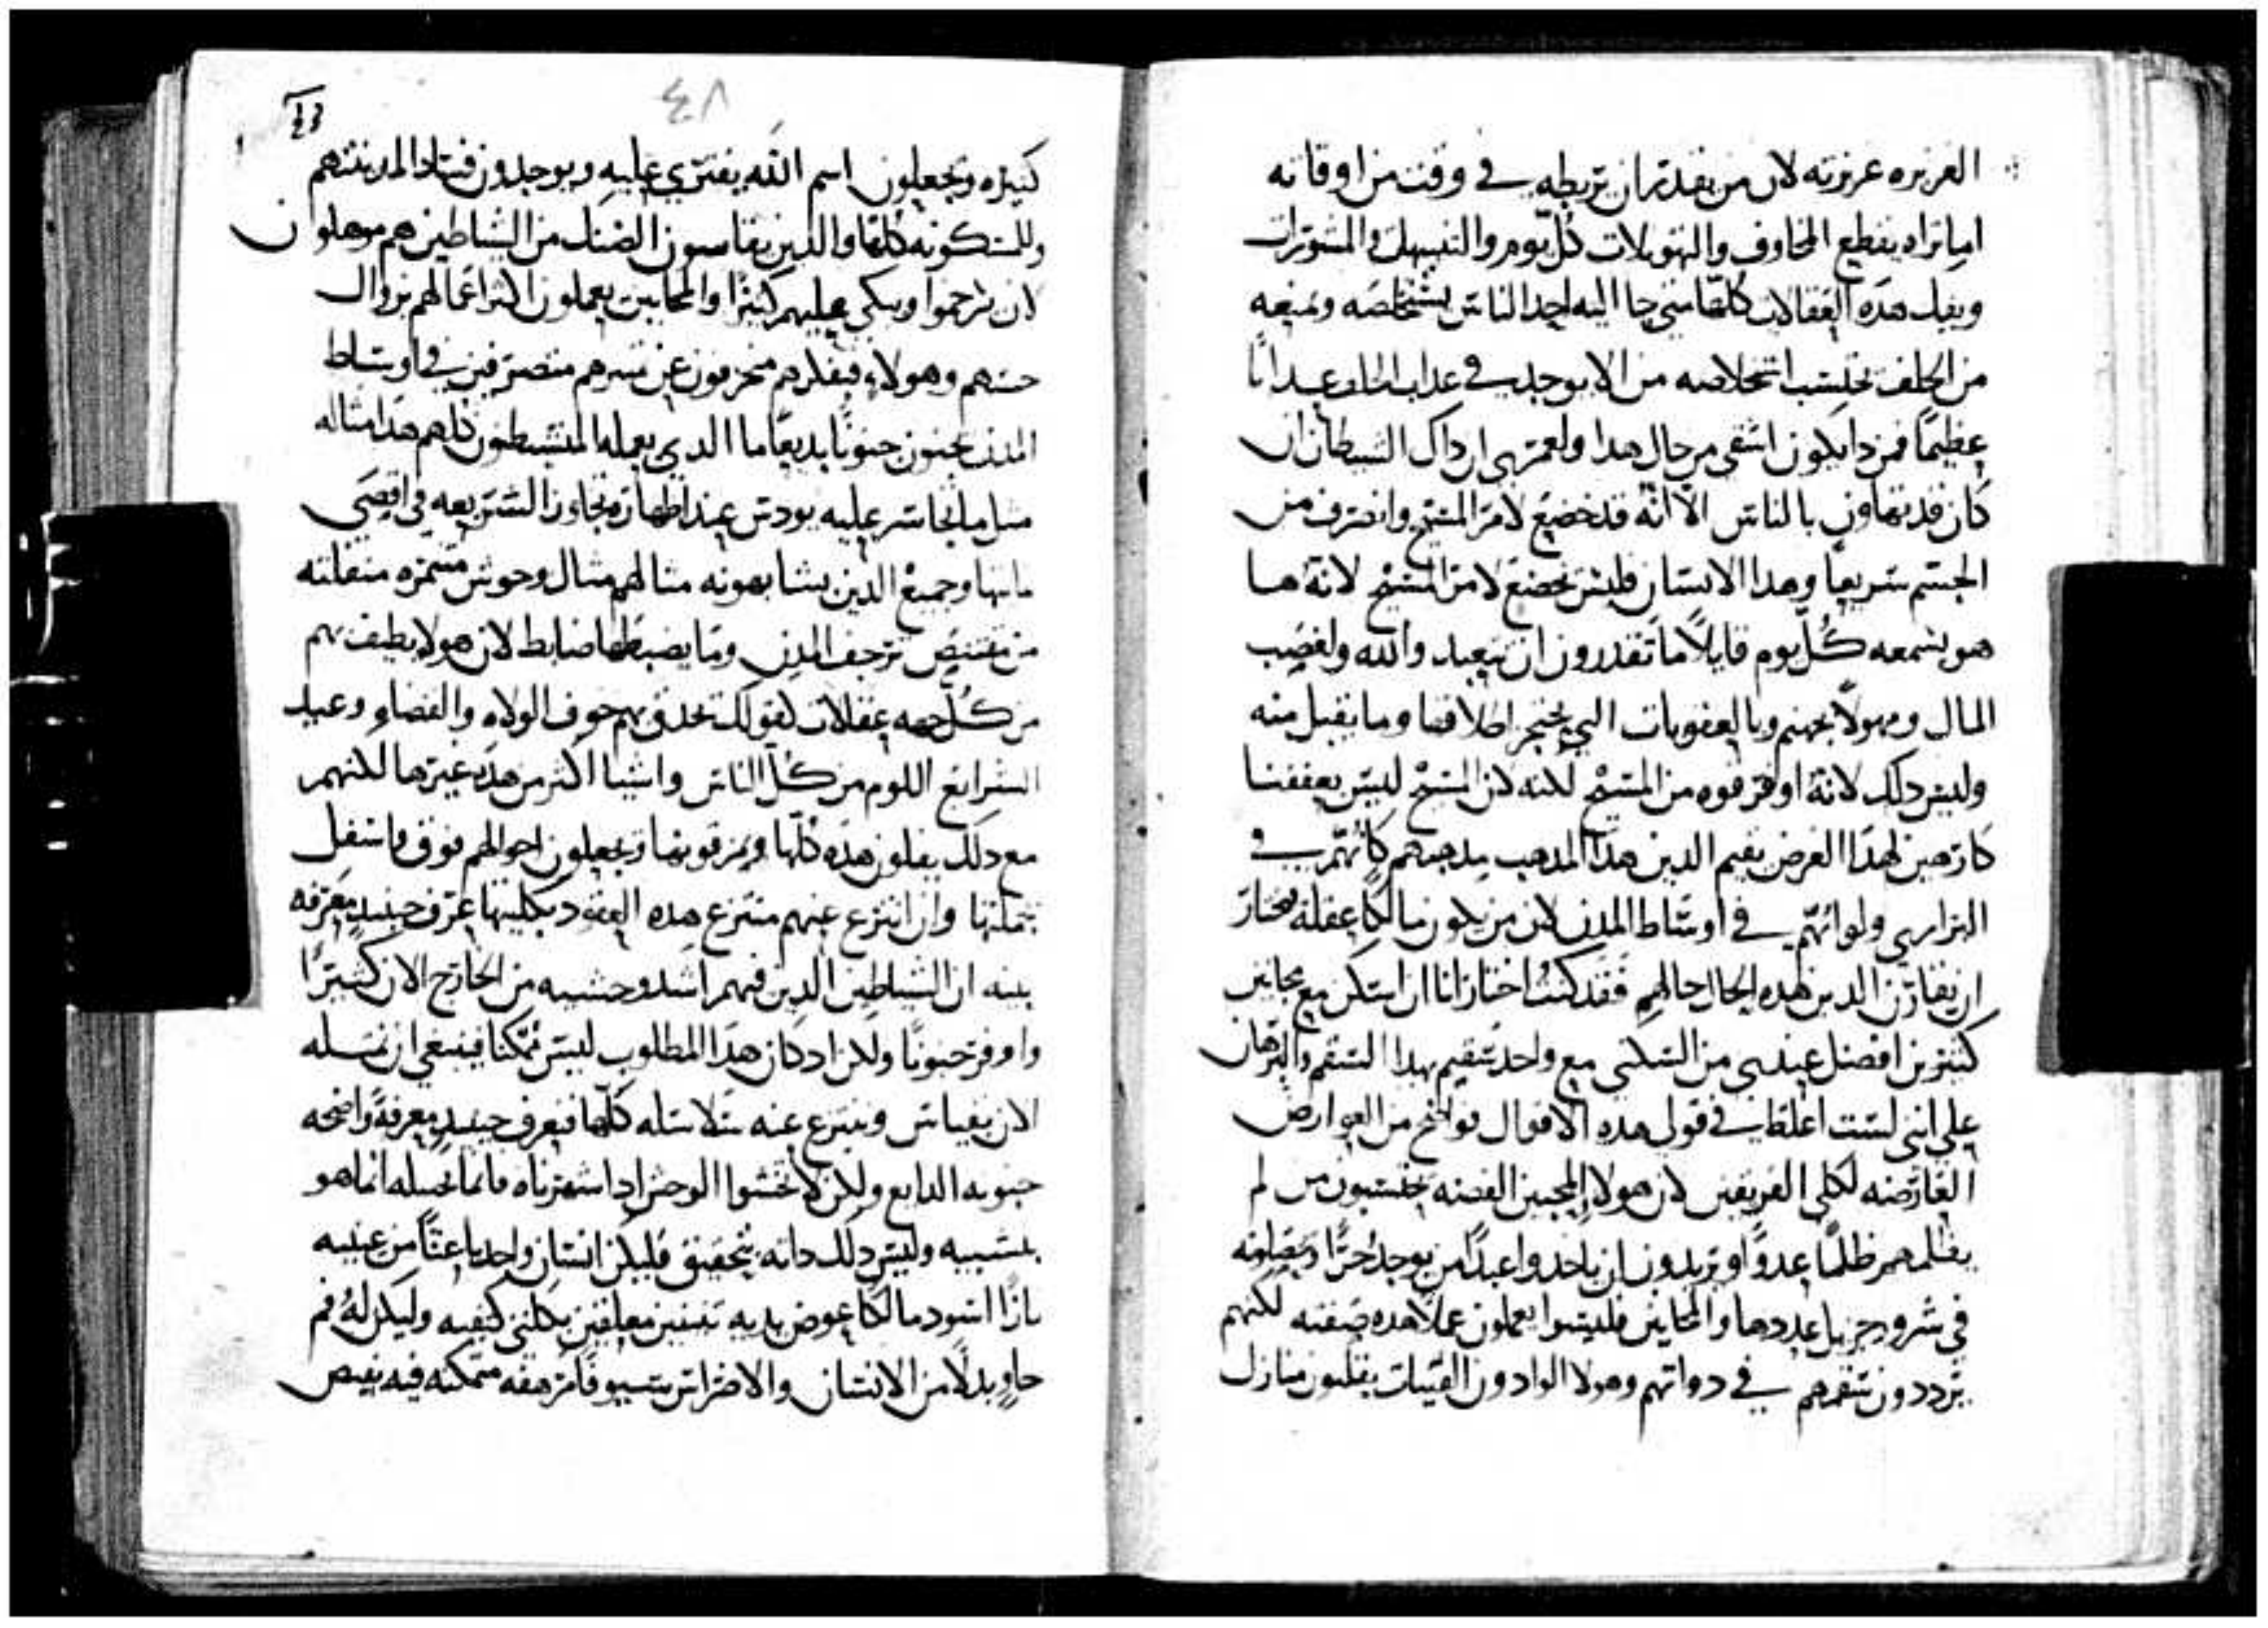 العزيزه عزيزته لان من يقدر ان يربطه في وقت من اوقاته
اما تراه يقطع المخاوف والتهويلات كل يوم والتسهل والمشورات
ويفك هذه العقالات كلها متي جا اليه احد الناس يستخلصه ويمنعه
من الحلف يحتسب استخلاصه من الا يوجد في عداب الحلف عدابا
عظيما فمن دا يكون اشقى من حال هدا ولعمري ان داك الشيطان ان
كان قد تهاون بالناس الا انه قد خضع لامر المسيح وانصرف من
الجسم سريعا وهدا الانسان فليس يخضع لامر المسيح لانه ها
هو يسمعه كل يوم قايلا ما تقدرون ان تتعبدوا لله ولغصب
المال ومهولا بجهنم وبالعقوبات التي يحتجر اطلاقها وما يقبل منه
وليس دلك لانه اوفر قوه من المسيح لكنه لان المسيح ليس يعففنا
كارهين لهدا الغرض يقيم الدين هدا المدهب مدهبهم كانهم في
البراري ولو انهم في اوساط المدن لان من يكون مالكا عقله يختار
ان يقارن الدين هده الحال حالهم فقد كنت اختار انا ان اسكن مع مجانين
كثيرين افضل عندي من السكنى مع واحد سقيم بهدا السقم والبرهان
على انني لست اغلط في قولي هده الاقوال فواضح من العوارض
العارضه لكلي الفريقين لان هولاء المحبين الفضه يحتسبون من لم
يظلمهم ظلما عدوا ويريدون ان ياخدوا عبدا من يوجد حرا ويصلونه
في شرور جزيل عددها والمجانين فليسوا يعملون عملا هده صفته لكنهم
يرددون سقمهم في دواتهم وهولا الوادون القنيات يقلبون منازل
٤٨
كثيره ويجعلون اسم الله يفترى عليه ويوجدون فسادا لمدينتهم
وللمسكونه كلها والدين يقاسون الضنك من الشياطين هم موهلون
لان يرحموا ويبكي عليهم كثيرا والمجانين يعملون اكثر اعمالهم بزوال
حسهم وهولاء فبفكرهم منحرفون عن سيرهم متصرفين في اوساط
المدن مجنون جنونا بديعا ما الدي يعمله المتشيطنون كلهم هدا مثاله
مثل ما تجاسر عليه يودس عند اظهاره تجاوز الشريعه في اقصى
غايتها وجميع الدين يشابهونه مثالهم مثال وحوش متنمره منفلته
من مقتنيص ترجف المدن وما يضبطها ضابط لان هولا يطيف بهم
من كل جهه عقالات كقولك تحدق بهم خوف الولاه والقضاه وعيد
الشرايع اللوم من كل الناس واشيا اكثر من هده غيرها لكنهم
مع دلك يفلون هده كلها ويمزقونها ويجعلون احوالهم فوق فاسفل
بجملتها وان انتزع عنهم منتزع هده القيود بكليتها عرف حينيد معرفه
بينه ان الشياطين الدين فيهم اشد وحشيه من الخارج الان كثيرا
واوفر جنونا ولكن ادكان هدا المطلوب ليس ممكنا فينبغي ان نمسله
الان بقياس وننزع عنه سلاسله كلها فنعرف حينيد معرفة واضحه
جنونه الدايع ولكن لا تخشوا الوحش ادا شهرناه فانما نخيله انما هو
بتشبيه وليس دلك داته بتحقيق فليكن انسان واحد باعثا من عينيه
نارا اسود مالكا عوض يديه تنينين معلقين بكلتي كتفيه وليكن له فم
حاو بدلا من الانسان والاضراس سيوفا مرهفه متمكنه فيه يفيض